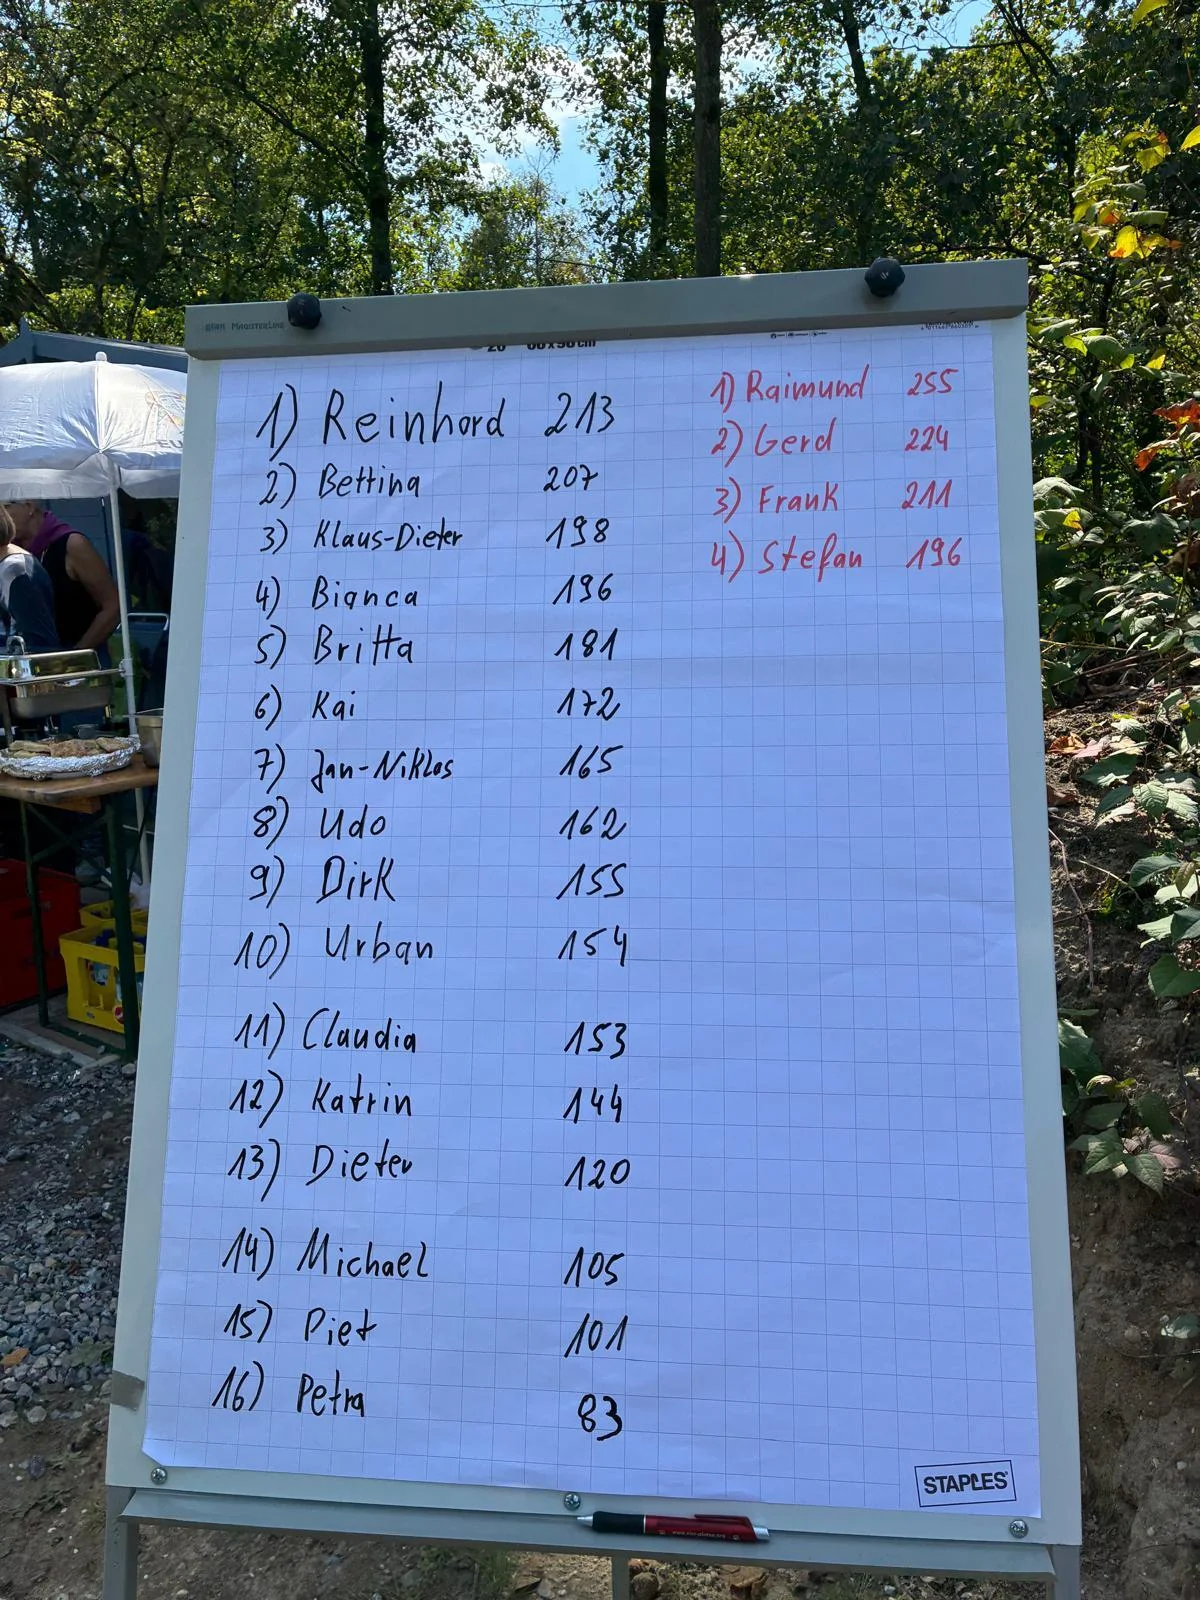 MAGISTERLINE
20 68x98cm
1) Reinhard 213
2) Bettina 207
3) Klaus-Dieter 198
4) Bianca 196
5) Britta 181
6) Kai 172
7) Jan-Niklas 165
8) Udo 162
9) Dirk 155
10) Urban 154
11) Claudia 153
12) Katrin 144
13) Dieter 120
14) Michael 105
15) Piet 101
16) Petra 83
1) Raimund 255
2) Gerd 224
3) Frank 211
4) Stefan 196
STAPLES